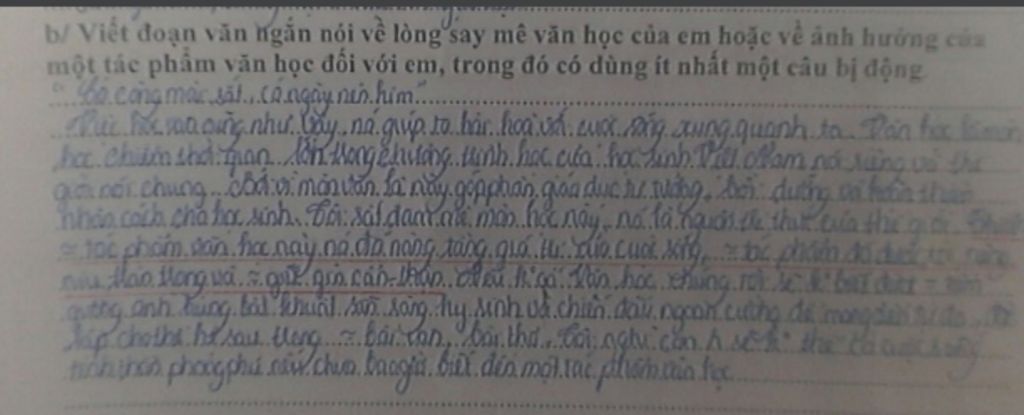 b/ Viết đoạn văn ngắn nói về lòng say mê văn học của em hoặc về ảnh hưởng của
một tác phẩm văn học đối với em, trong đó có dùng ít nhất một câu bị động.
"Có công mài sắt, có ngày nên kim"
như vậy, nó giúp ta hài hoà với cuộc sống xung quanh ta. Văn học là môn
học chiếm thời gian lớn trong chương trình học của học sinh Việt Nam nói riêng và thế
giới nói chung. Bởi vì môn văn là này góp phần giáo dục tư tưởng, bồi dưỡng và hoàn thiện
nhân cách cho học sinh. Tôi rất đam mê môn học này, nó là người của thế giới.
≈ tác phẩm văn học này nó đã nâng tầng giá trị của cuộc sống, ≈ tác phẩm đó được
trong và ≈ giữ gìn cẩn thận. Nếu k° có văn học, chúng ta sẽ k° biết được ≈
gương anh hùng bất khuất sẵn sàng hy sinh và chiến đấu ngoan cường để mang đến
cho thế hệ sau trong ≈ bài văn, bài thơ. Tôi nghĩ còn h sẽ k° thể có cuộc sống
tinh thần phong phú nếu chưa bao giờ biết đến một tác phẩm văn học.